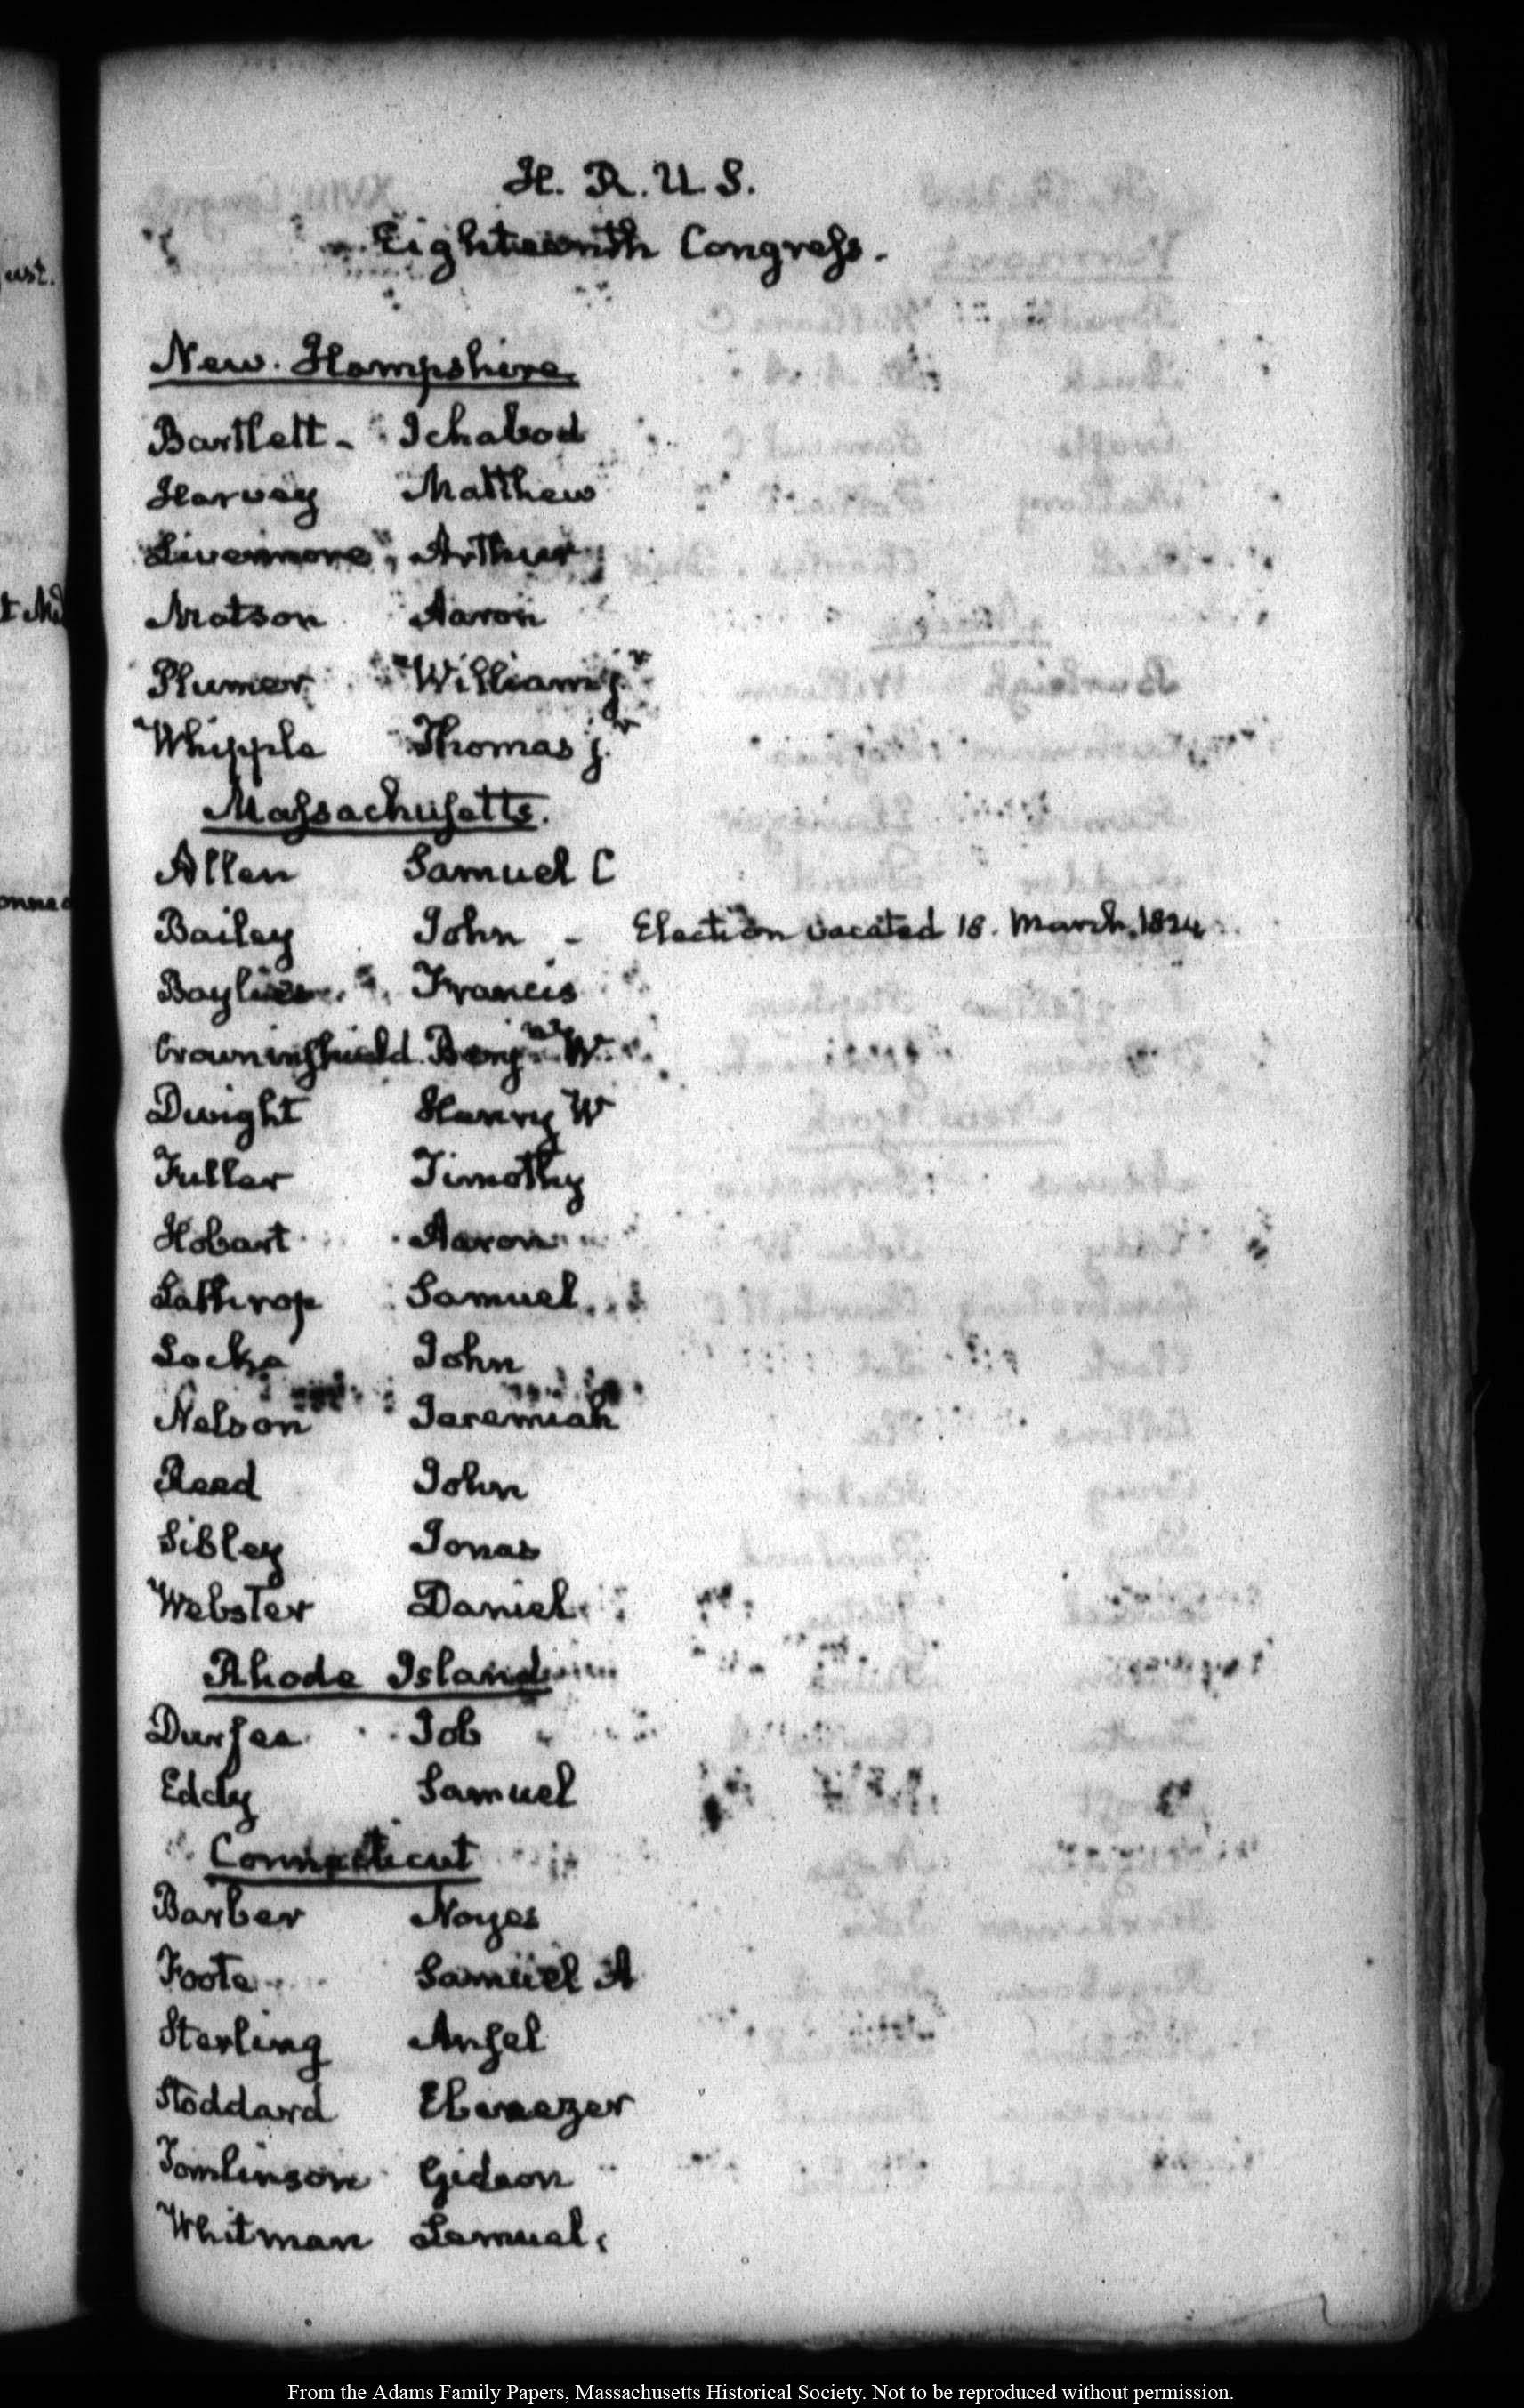 H. R. U S.
Eighteenth Congress.
New. Hampshire.
Bartlett - Ichabod
Harvey Matthew
Livermore, Arthur
Matson Aaron
Plumer William jr
Whipple Thomas jr
Massachusetts.
Allen Samuel C
Bailey John - Election vacated 18. March. 1824
Baylies Francis
Crowninshield. Benjn W.
Dwight Henry W
Fuller Timothy
Hobart Aaron
Lathrop Samuel
Locke John
Nelson Jeremiah
Reed John
Sibley Jonas
Webster Daniel
Rhode Island
Durfee Job
Eddy Samuel
Connecticut
Barber Noyes
Foote Samuel A
Sterling Ansel
Stoddard Ebenezer
Tomlinson Gideon
Whitman Lemuel.
ust.
From the Adams Family Papers, Massachusetts Historical Society. Not to be reproduced without permission.